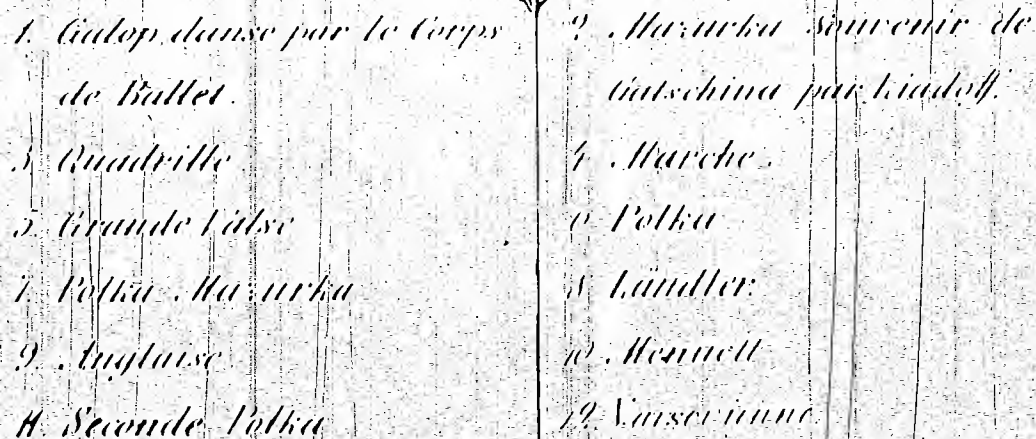 1. Galop danse par le Corps
de Ballet.
3. Quadrille.
5. Grande Valse
7. Polka Mazurka
9. Anglaise
11. Seconde Polka
2. Mazurka Souvenir de
Gatschina par Liadoff.
4. Marche.
6. Polka
8. Ländler.
10. Menuett
12. Varsovienne